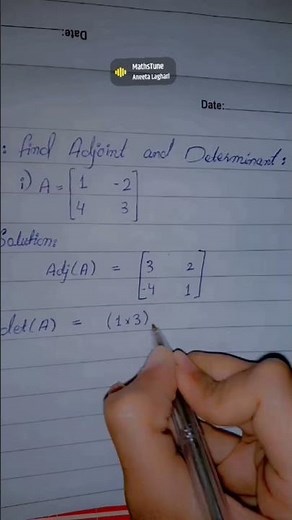 Date:
MathsTune
Aneeta Laghari
Date:
: find Adjoint and Determinant:
i) A = [1 -2
4 3]
Solution:
Adj(A) = [3 2
-4 1]
det(A) = (1×3)